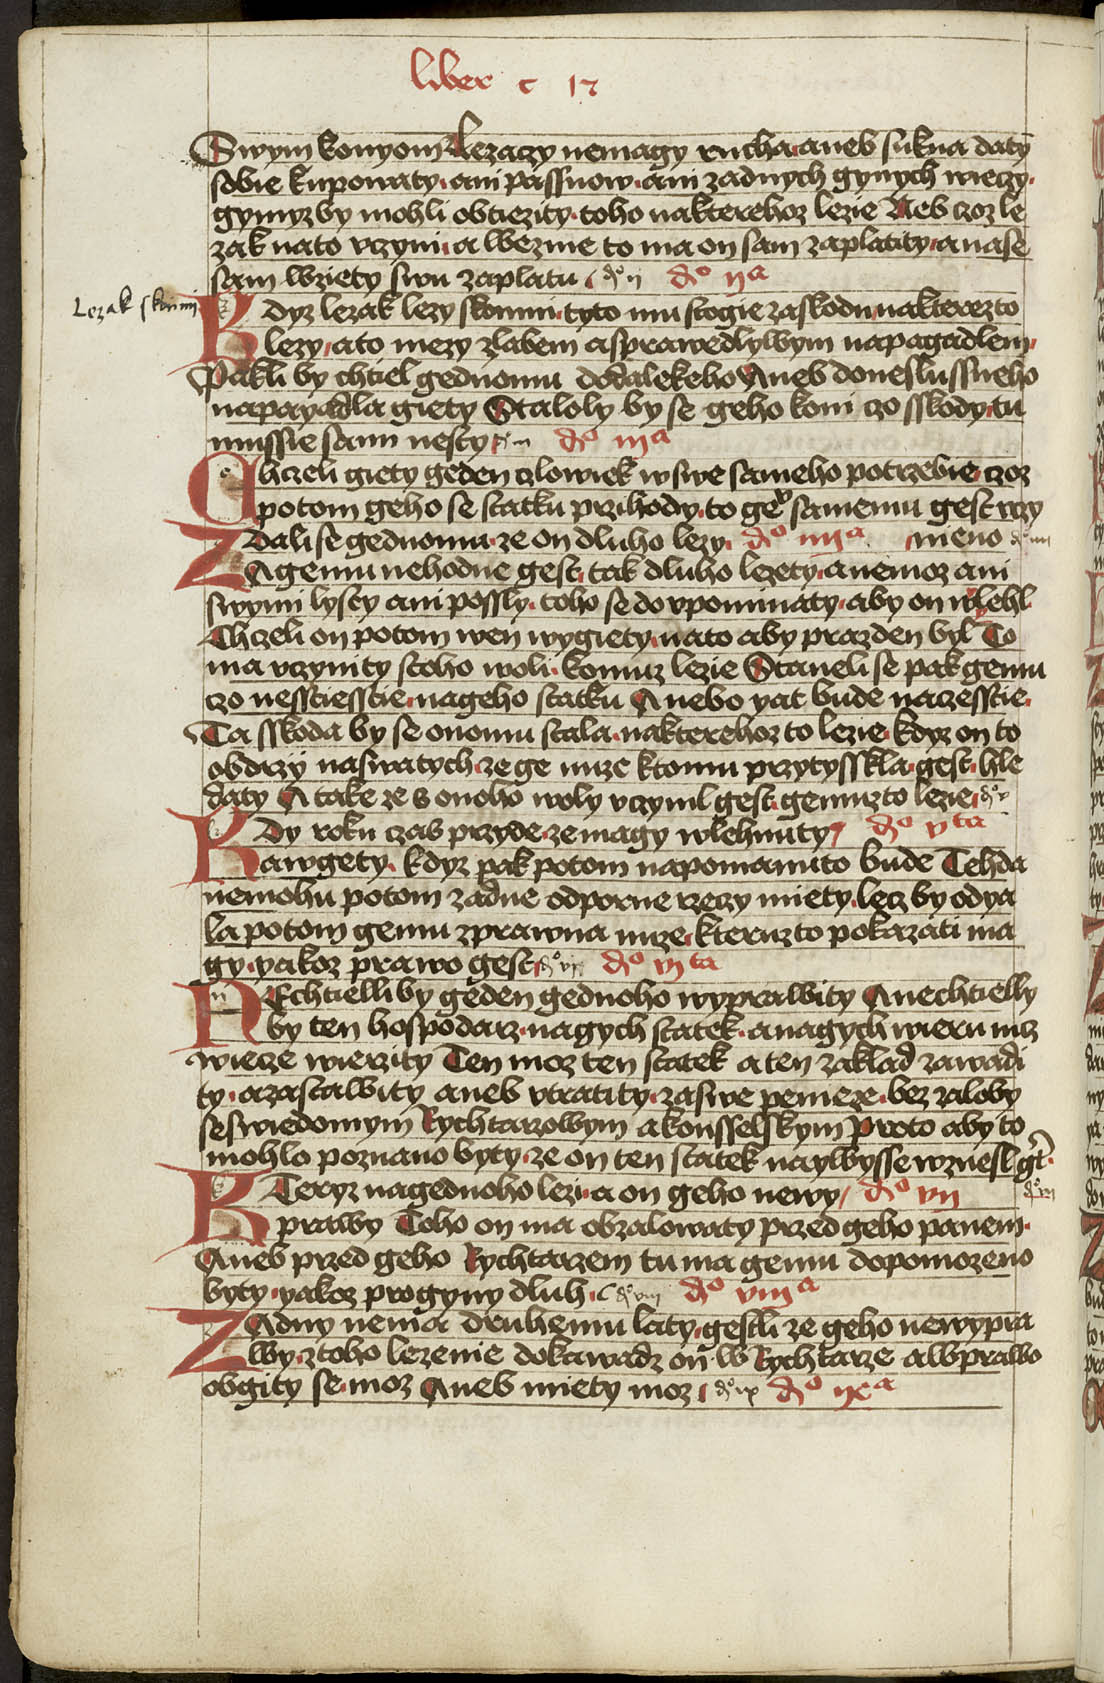 liber c 17
Swym konyom Lezaczy nemagy rucha aneb sukna daty
sobie kupowaty · ani passuow · ani zadnych gynych wieczy ·
gymyz by mohli obtiezity · toho nakterehoz lezie Neb czoz le
zak nato vczyni · a wezme to ma on sam zaplatity · a nase
sam wziety swu zaplatu · d° ij d° ij a
Lezak skonmi
Kdyz lezak lezy skonmi · tyto mu stogie zaskodu · nakterezto
lezy · ato mezy zlabem asprawedlywym napagadlem ·
Pakli by chtiel gednomu dodalekeho Aneb doneslussneho
napayadla giety Staloly by se geho koni czo sskody · tu
mussie sam nesty · d° iij d° iij a
Chczeli giety geden czlowiek w swe sameho potrzebie · czoz
potom geho se statku przihody · to geo samemu gest wzy
Zdalise gednomu · ze on dluho lezy · d° iiij a meno d° iiij
Agemu nehodne gest · tak dluho lezety · anemoz ani
swymi lysty ani possly · toho se do vpominaty · aby on wlehl
Chczeli on potom wen wygiety · nato aby prazden byl To
ma vczynity stoho woli · komuz lezie Staneli se pak gemu
czo nesstiesstie · nageho statku Anebo yat bude naczesstie ·
Ta sskoda by se onomu stala · nakterehoz to lezie · kdyz on to
obdrzy naswatych · ze ge muze ktomu przytysskla · gest · hle
daty A take ze s onoho woly vczynil gest · gemuzto lezie · d° v
Kdy roku czas przyde · ze magy wlehnuty · d° v ta
a w gety · kdyz pak potom napomanuto bude Tehda
nemohu potom zadne odporne rzeczy miety · lecz by odya
la potom gemu zprawna nuze · kteruzto pokazati ma
gy · yakoz prawo gest · d° vj d° vj ta
NEchtielliby geden gednoho wyprawity Anechtielly
by ten hospodarz · nagych statek · anagych wieru nicz
wiecze wierzity Ten moz ten statek a ten zaklad zawadi
ty · azastawity aneb vtratity · zaswe penieze · bez zaloby
seswiedomym Rychtarzowym akonsselskym Proto aby to
mohlo poznano byty · ze on ten statek naywysse wzniesl gt ·
KTeryz nagednoho lezi · a on geho newy d° vij d° vij
prawy Toho on ma obzalowaty przed geho panem ·
Aneb przed geho Rychtarzem tu ma gemu dopomozeno
byty · yakoz progyny dluh · d° viij d° viij a
ZAdny nema druhemu laty · gestli ze geho newypra
wy · ztoho lezenie dokawadz on w Rychtarze awprawo
obgity se · moz Aneb miety moz · d° ix d° ix a